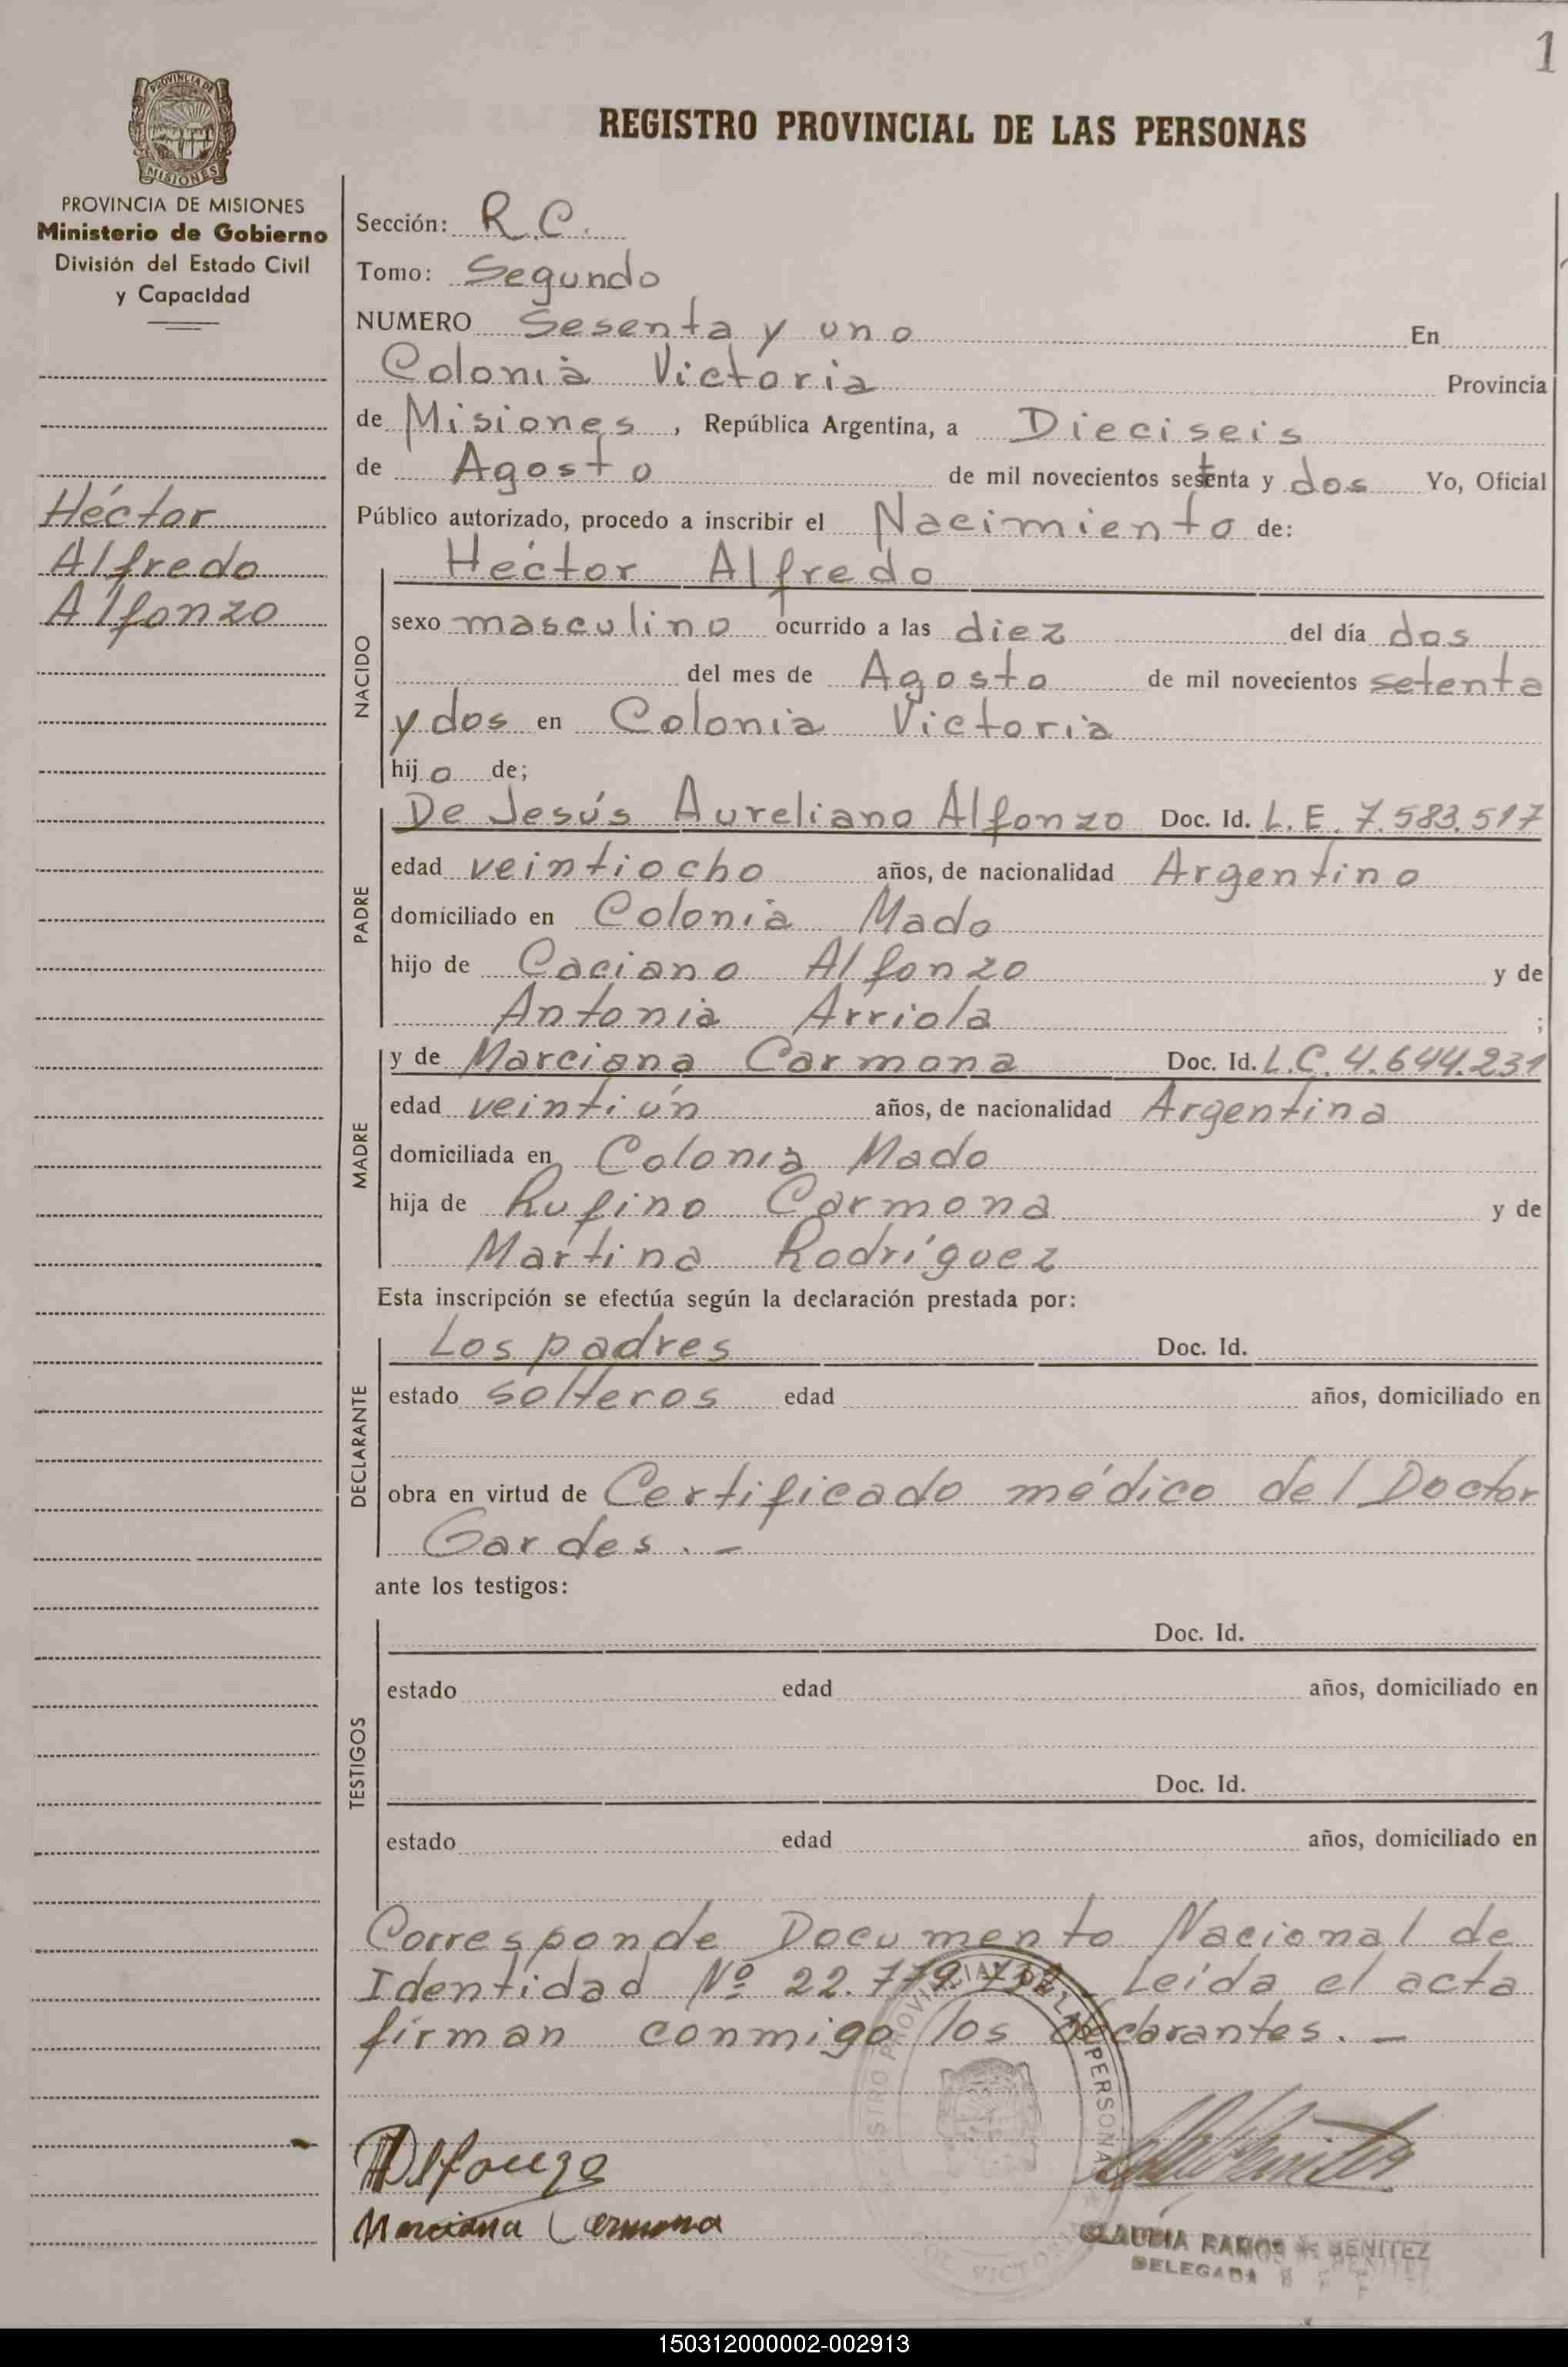 1
PROVINCIA DE
MISIONES
REGISTRO PROVINCIAL DE LAS PERSONAS
PROVINCIA DE MISIONES
Ministerio de Gobierno
División del Estado Civil
y Capacidad
Héctor
Alfredo
Alfonzo
Sección: R.C.
Tomo: Segundo
NUMERO Sesenta y uno En
Colonia Victoria Provincia
de Misiones, República Argentina, a Dieciseis
de Agosto de mil novecientos setenta y dos Yo, Oficial
Público autorizado, procedo a inscribir el Nacimiento de:
NACIDO
Héctor Alfredo
sexo masculino ocurrido a las diez del día dos
del mes de Agosto de mil novecientos setenta
y dos en Colonia Victoria
hijo de;
PADRE
De Jesús Aureliano Alfonzo Doc. Id. L.E. 7.583.517
edad veintiocho años, de nacionalidad Argentino
domiciliado en Colonia Mado
hijo de Caciano Alfonzo y de
Antonia Arriola ;
MADRE
y de Marciana Carmona Doc. Id. L.C. 4.644.231
edad veintiún años, de nacionalidad Argentina
domiciliada en Colonia Mado
hija de Rufino Carmona y de
Martina Rodríguez
Esta inscripción se efectúa según la declaración prestada por:
DECLARANTE
Los padres Doc. Id.
estado solteros edad años, domiciliado en
obra en virtud de Certificado médico del Doctor
Gardes.-
ante los testigos:
TESTIGOS
Doc. Id.
estado edad años, domiciliado en
Doc. Id.
estado edad años, domiciliado en
Corresponde Documento Nacional de
Identidad Nº Leída el acta
firman conmigo los declarantes.-
Alfonzo
Marciana Carmona
CLAUDIA RAMOS de BENITEZ
DELEGADA
150312000002-002913